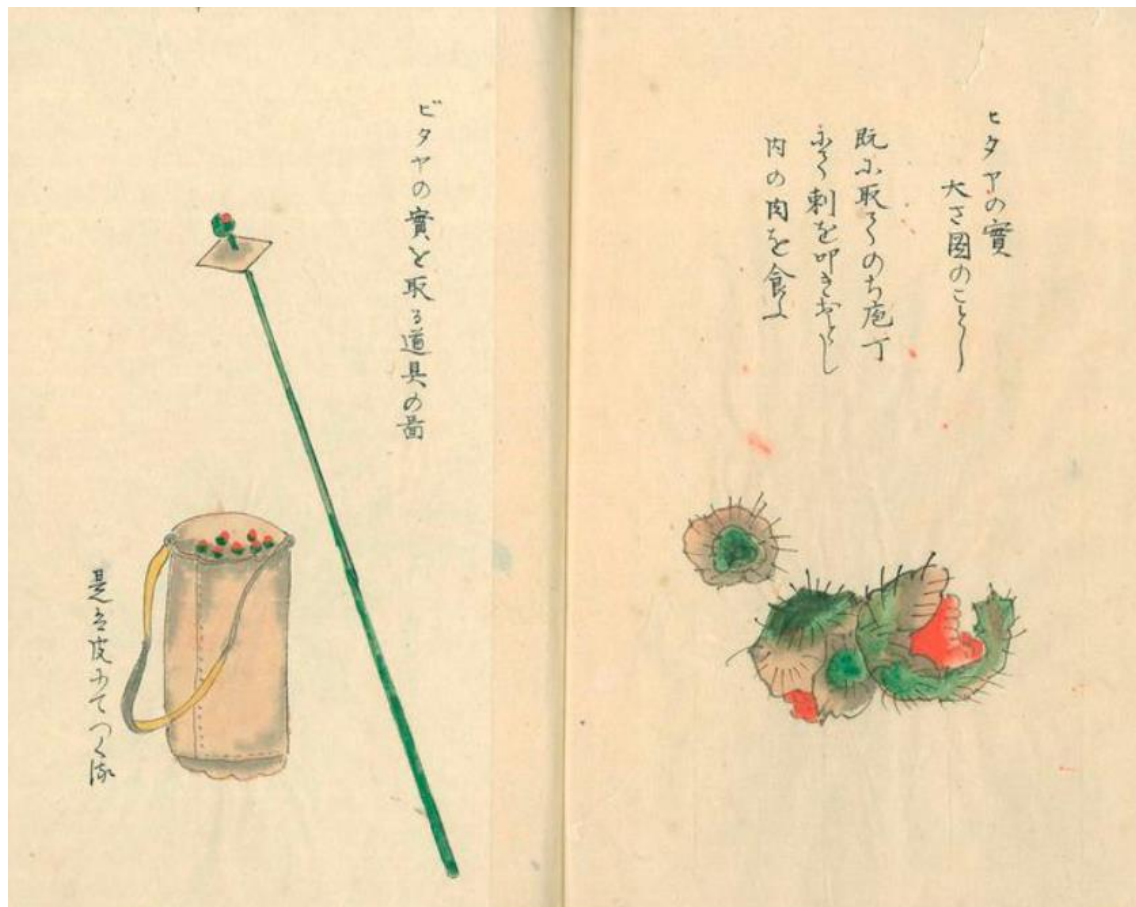 ヒタヤの實
大さ圖のことし
既に取てのち庖丁
にて刺を叩きおとし
内の肉を食ふ
ビタヤの實を取る道具の啚
是は皮にてつく流